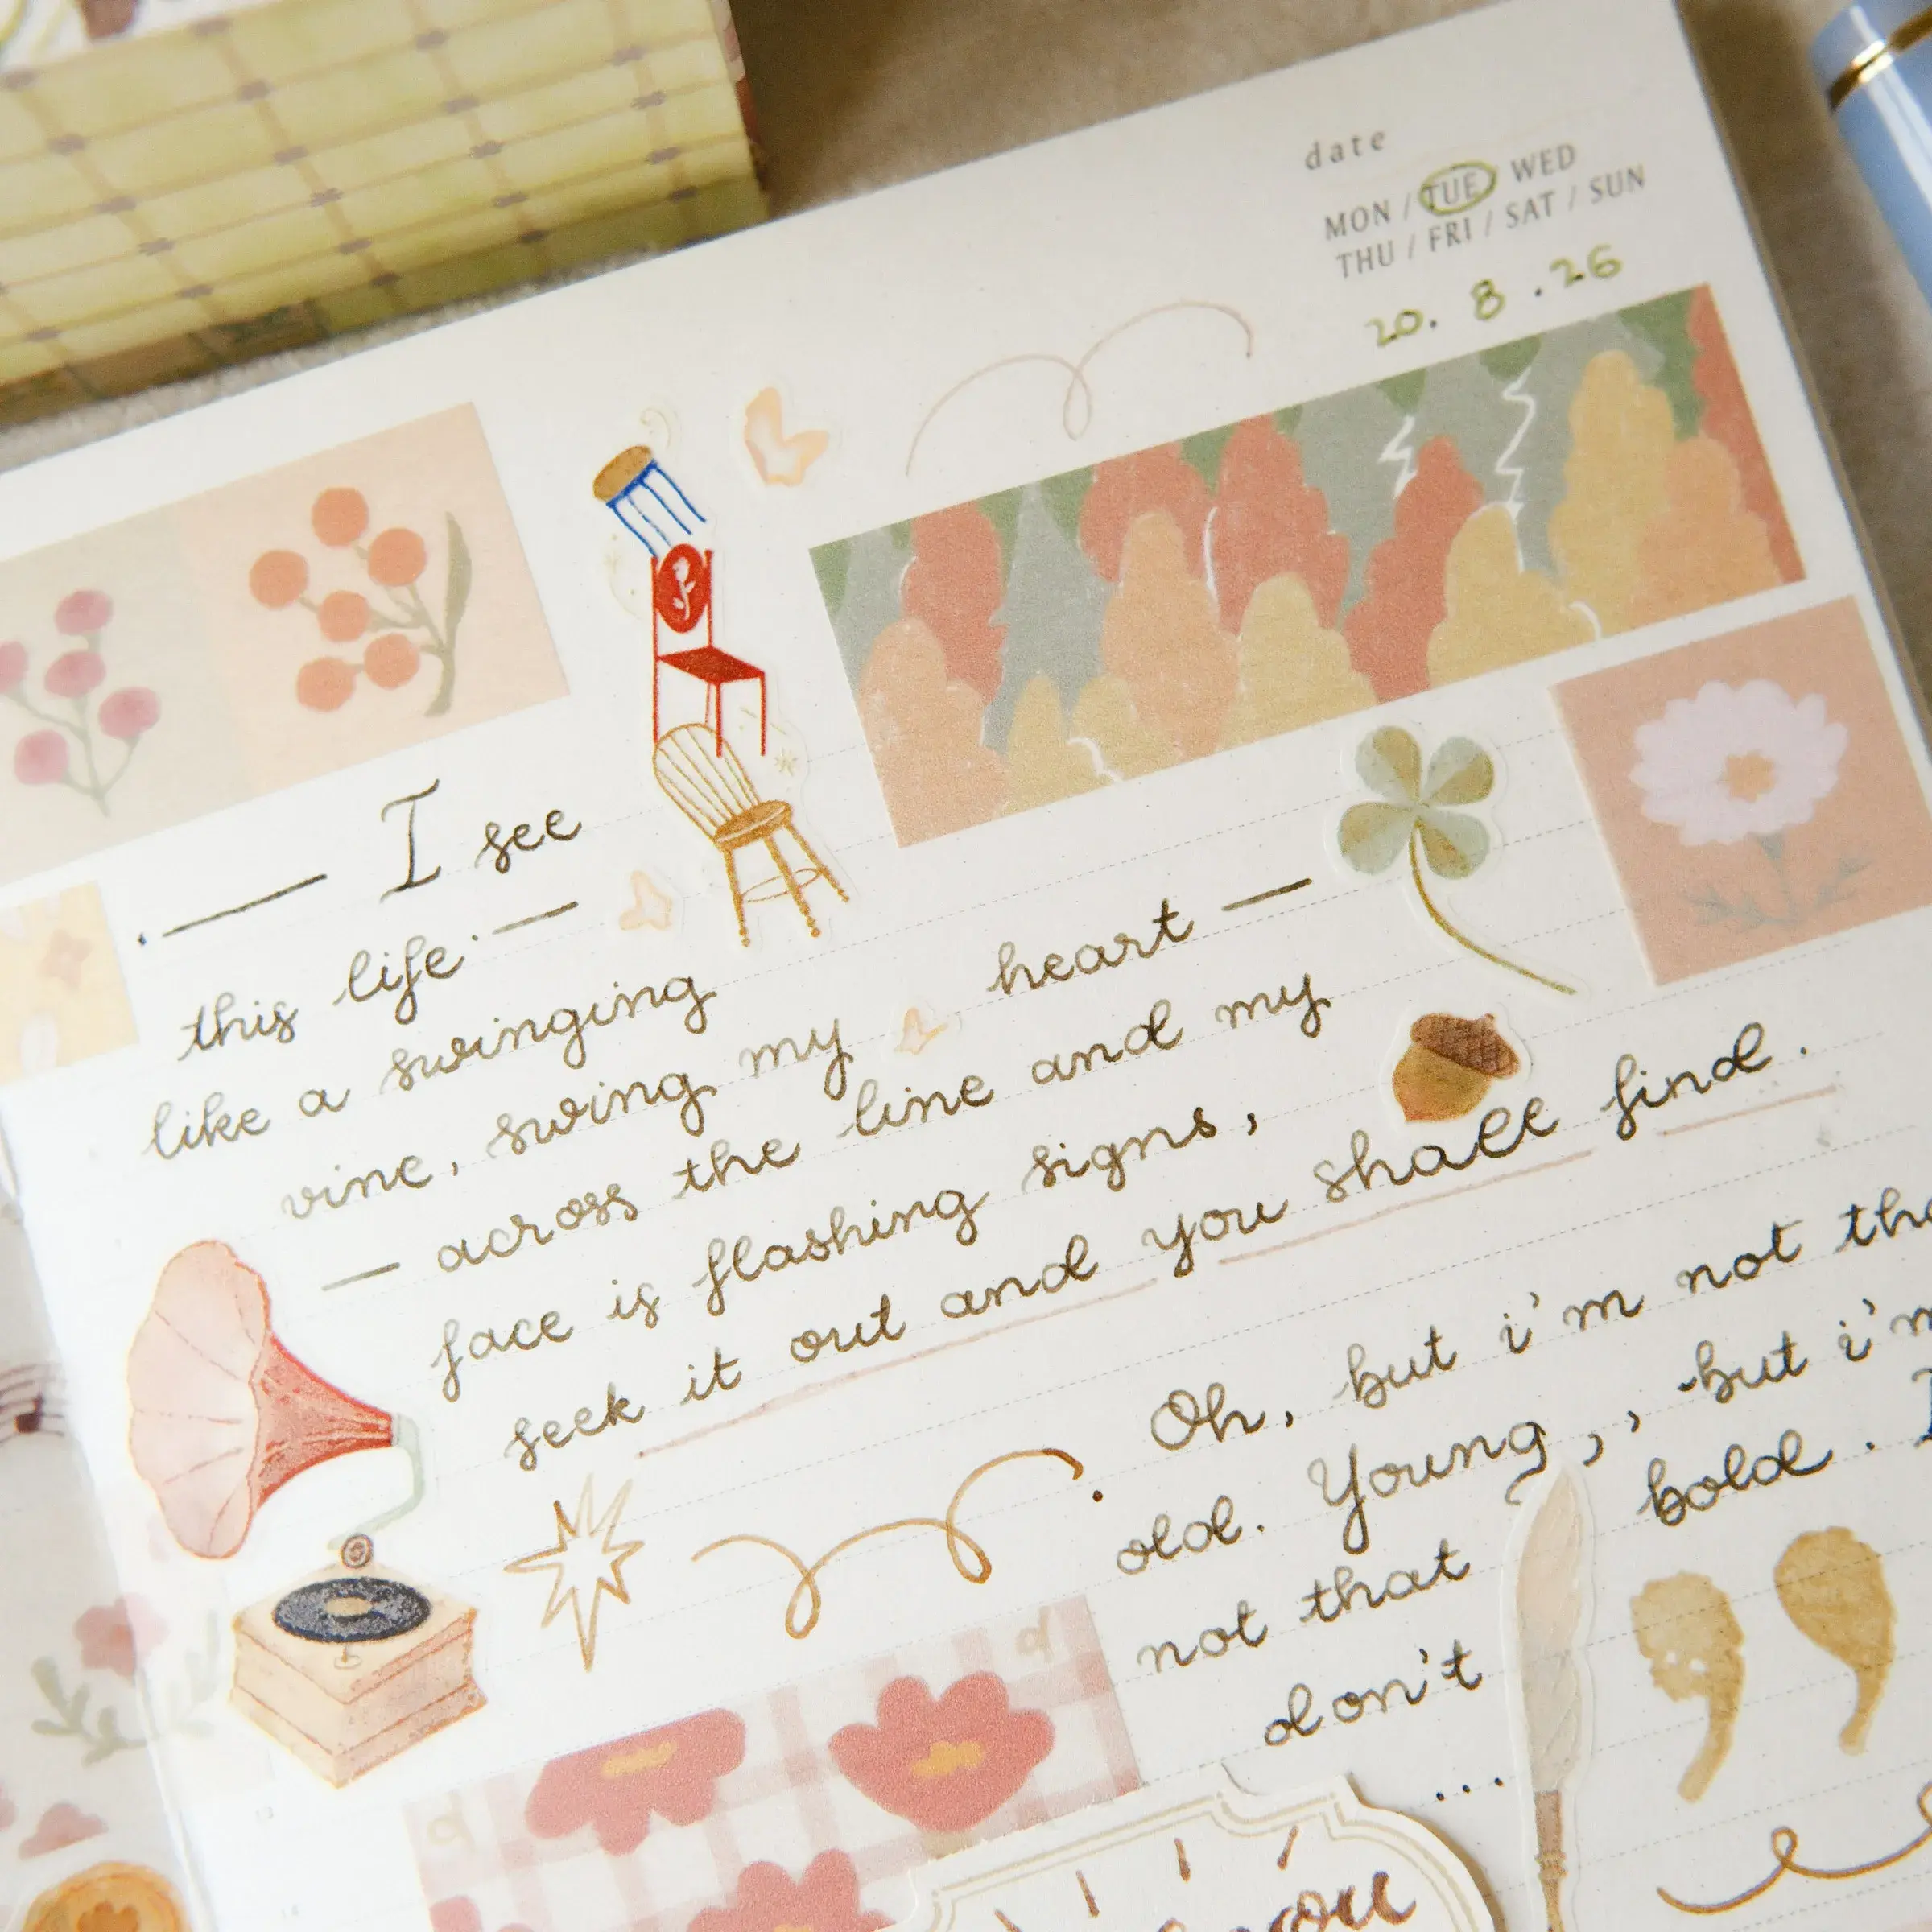 date
MON / TUE / WED
THU / FRI / SAT / SUN
20. 8 . 26
I see
this life
like a swinging
vine, swing my heart —
— across the line and my
face is flashing signs,
seek it out and you shall find.
Oh, but i'm not
old. Young, , but i'm
not that bold.
don't
...
you